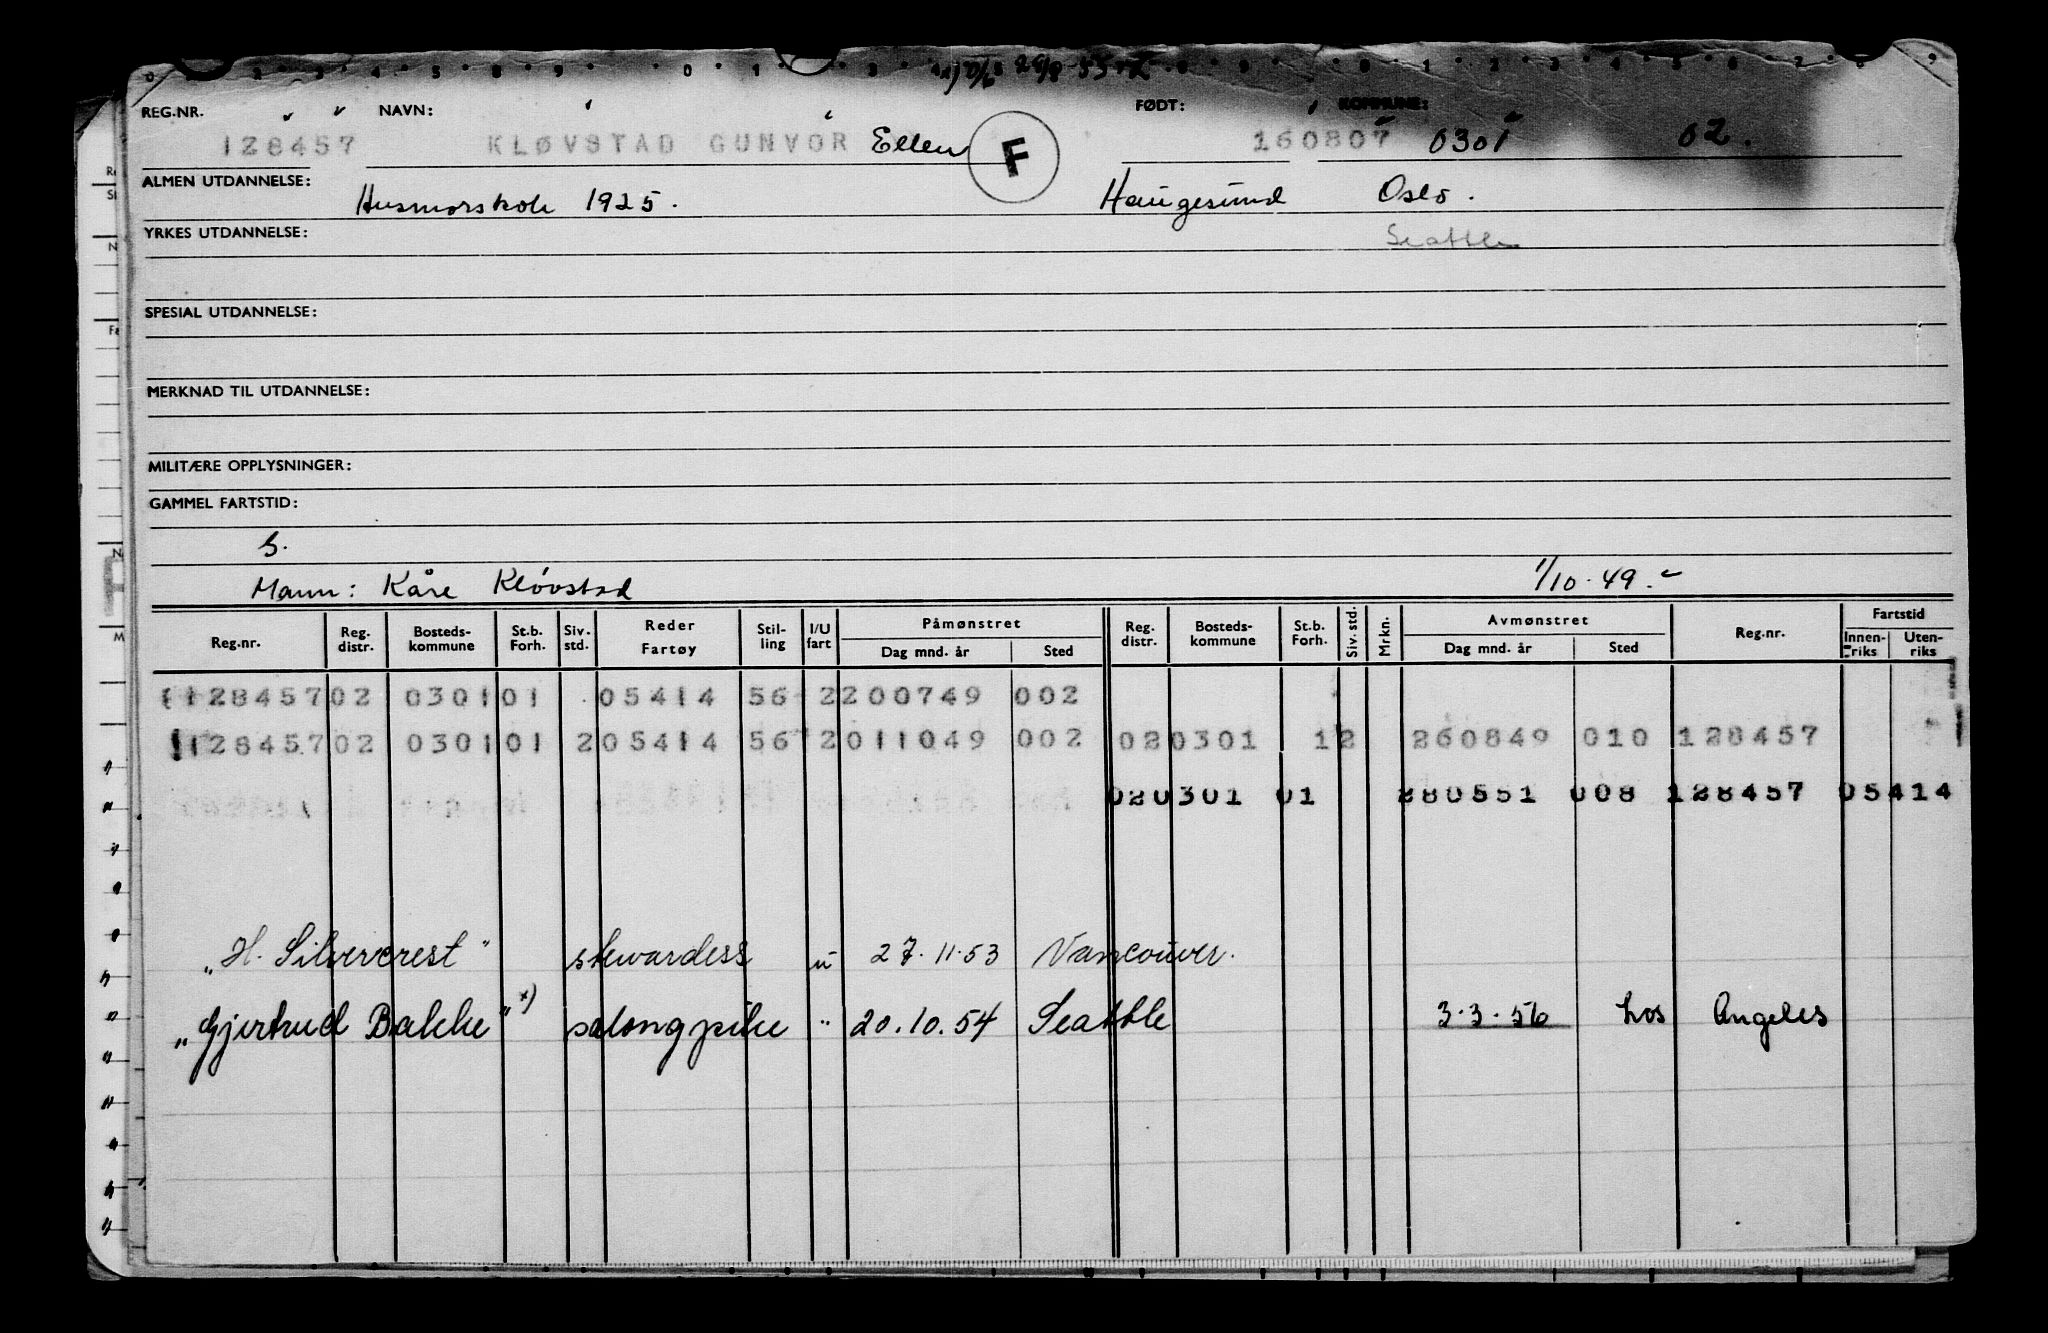 REG.NR. NAVN: FØDT: KOMMUNE:
128457 KLØVSTAD GUNVOR Ellen F 160807 0301 02.
ALMEN UTDANNELSE: Husmorskole 1925. Haugesund Oslo.
YRKES UTDANNELSE: Seattle
SPESIAL UTDANNELSE:
MERKNAD TIL UTDANNELSE:
MILITÆRE OPPLYSNINGER:
GAMMEL FARTSTID:
G.
Mann: Kåre Kløvstad 1/10.49.
Reg.nr. Reg. distr. Bosteds- kommune St.b. Forh. Siv. std. Reder Fartøy Stil- ling I/U fart Påmønstret Dag mnd. år Sted Reg. distr. Bosteds- kommune St.b. Forh. Siv. std. Mrkn. Avmønstret Dag mnd. år Sted Reg.nr. Fartstid Innen- riks Uten- riks
128457 02 0301 01 05414 56 2 200749 002
128457 02 0301 01 2 05414 56 2 011049 002 02 0301 12 260849 010 128457
02 0301 01 280551 008 128457 05414
„H. Silvercrest" stewardess u 27.11.53 Vancouver.
„Gjertrud Bakke" x) salongpike " 20.10.54 Seattle 3.3.56 Los Angeles